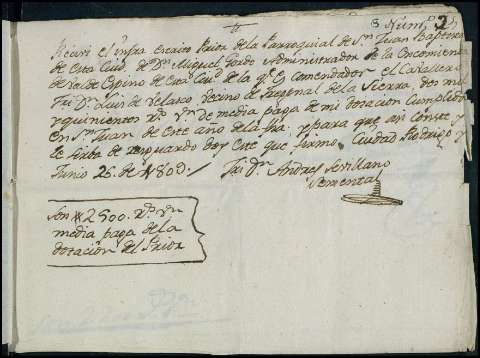 Num.º 2
Recivi el infra escrito Prior de la Parroquial de Sn. Juan Baptista
de esta Ciud. de Dn. Miguel Pardo Administrador de la Encomienda
de Valde Espino de esta Ciud. de la qe. es Comendador el Cavallero
Frei Dn. Luis de Velasco, vecino de la Sierra, dos mil
y quinientos rs. vn. de media paga de mi dotacion cumplida
en Sn. Juan de este año de la fha, y para que asi conste y
le sirba de resguardo doy este que firmo. Ciudad Rodrigo y
Junio 26. de 1803.
Frei Dn. Andres Sevillano
Son 2500. rs. vn
media paga de la
dotacion del Prior